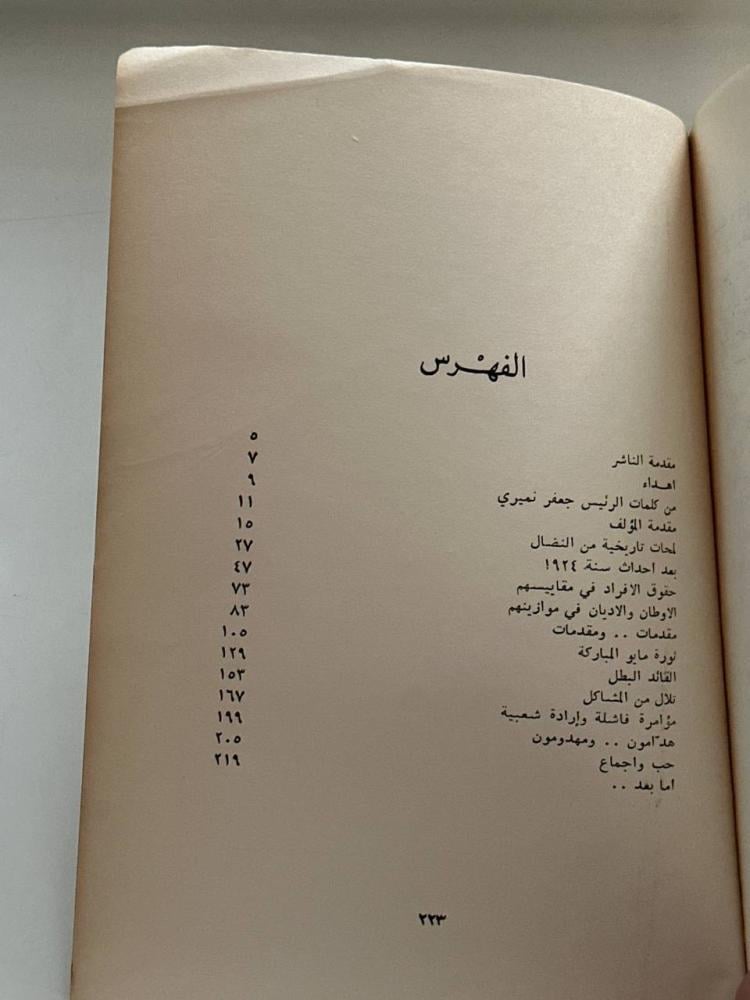 الفهرس
مقدمة الناشر ٥
اهداء ٧
من كلمات الرئيس جعفر نميري ٩
مقدمة المؤلف ١١
لمحات تاريخية من النضال ١٥
بعد احداث سنة ١٩٢٤ ٢٧
حقوق الافراد في مقاييسهم ٤٧
الاوطان والاديان في موازينهم ٧٣
مقدمات .. ومقدمات ٨٣
ثورة مايو المباركة ١٠٥
القائد البطل ١٢٩
تلال من المشاكل ١٥٣
مؤامرة فاشلة وإرادة شعبية ١٦٧
هدّامون .. ومهدومون ١٩٩
حب واجماع ٢٠٥
اما بعد .. ٢١٩
٢٢٣